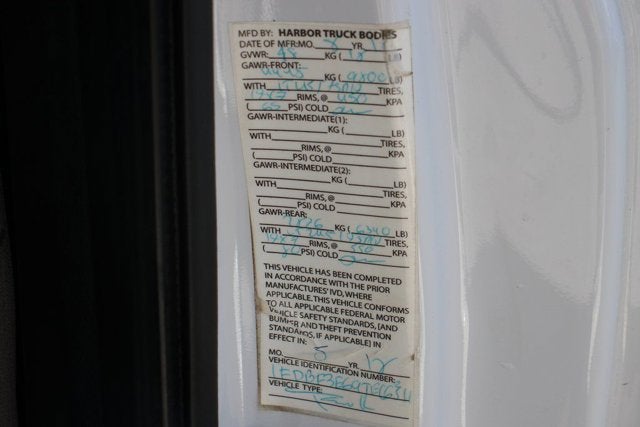 MFD BY: HARBOR TRUCK BODIES
DATE OF MFR: MO. 8 YR.
GVWR: KG ( LB)
GAWR-FRONT:
KG ( LB)
WITH TIRES,
RIMS, @ 450 KPA
( 65 PSI) COLD
GAWR-INTERMEDIATE(1):
KG ( LB)
WITH TIRES,
RIMS, @ KPA
( PSI) COLD
GAWR-INTERMEDIATE(2):
KG ( LB)
WITH TIRES,
RIMS, @ KPA
( PSI) COLD
GAWR-REAR:
KG ( 6340 LB)
WITH TIRES,
RIMS, @ 550 KPA
( 80 PSI) COLD
THIS VEHICLE HAS BEEN COMPLETED
IN ACCORDANCE WITH THE PRIOR
MANUFACTURES' IVD, WHERE
APPLICABLE. THIS VEHICLE CONFORMS
TO ALL APPLICABLE FEDERAL MOTOR
VEHICLE SAFETY STANDARDS, (AND
BUMPER AND THEFT PREVENTION
STANDARDS, IF APPLICABLE) IN
EFFECT IN:
MO. 5 YR. 12
VEHICLE IDENTIFICATION NUMBER:
VEHICLE TYPE: